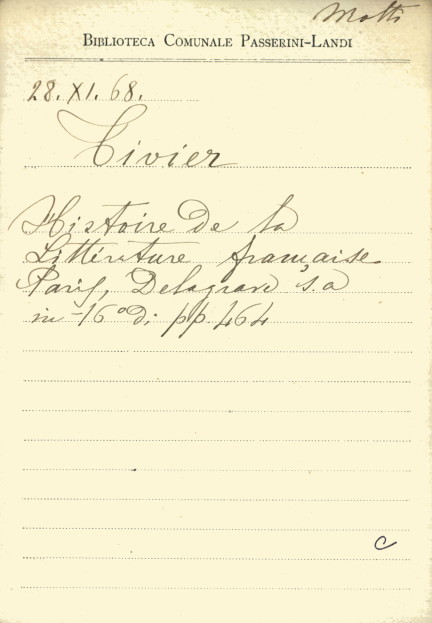 Motti
BIBLIOTECA COMUNALE PASSERINI-LANDI
28. XI. 68.
Tivier
Histoire de la
Littérature française
Paris, Delagrave s. a
in-16° di pp. 464
C